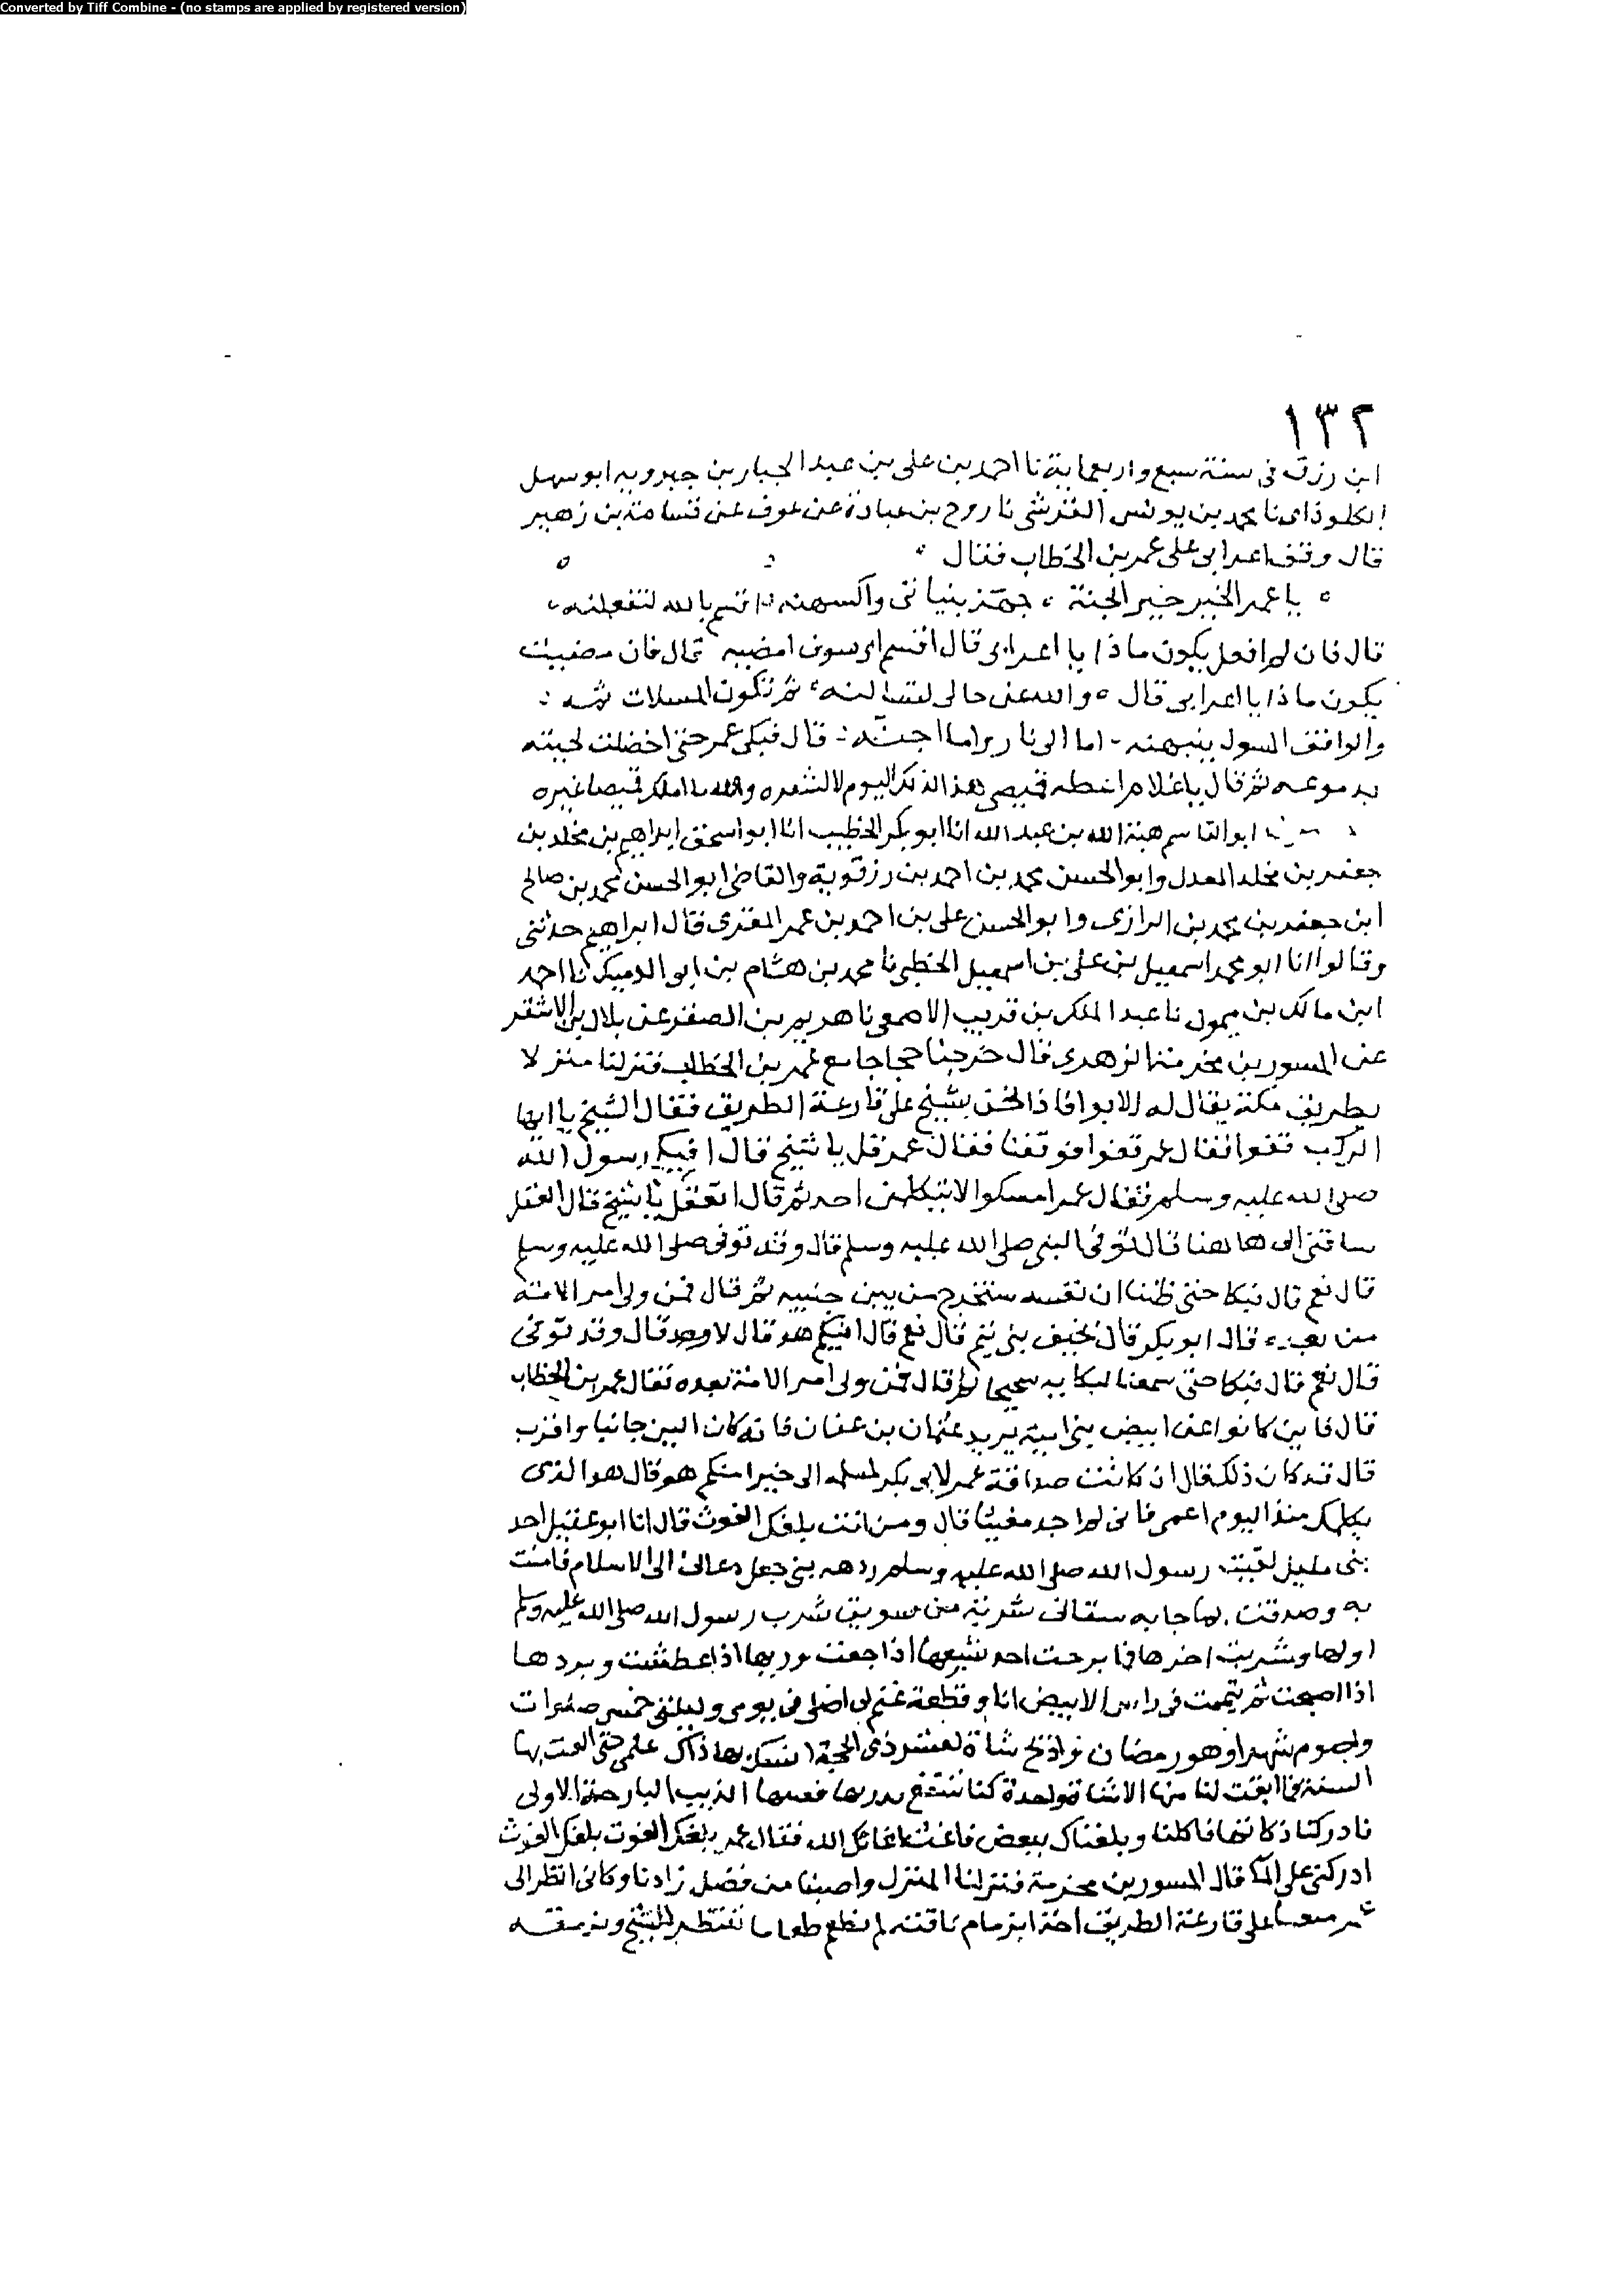 Converted by Tiff Combine - (no stamps are applied by registered version)
١٣٢
ابن رزق فى سنة سبع واربعماية نا احمد بن على بن عبد الجبار بن جبرويه ابو سهل
الكلوذانى نا محمد بن يونس القرشى نا روح بن عبادة عن عوف عن قسامة بن زهير
قال وقف اعرابى على عمر بن الخطاب فقال
يا عمر الخير خير الجنة جهز بنياتى واكسهنه اقسم بالله لتفعلنه
قال فان لم افعل يكون ماذا يا اعرابى قال اقسم انى سوف امضيه قال فان مضيت
يكون ماذا يا اعرابى قال والله عن حالى لتسالنه ثم تكون المسلات ثمه
والواقف المسول بينهنه اما الى نار واما جنه قال فبكى عمر حتى اخضلت لحيته
بدموعه ثم قال يا غلام اعطه قميصى هذا لذلك اليوم لا لشعره والله ما املك قميصا غيره
ابو القاسم هبة الله بن عبد الله انا ابو بكر الخطيب انا ابو اسحق ابراهيم بن مخلد بن
جعفر بن مخلد المعدل وابو الحسن محمد بن احمد بن رزقوية والقاضى ابو الحسن محمد بن صالح
ابن جعفر بن محمد بن الرازى وابو الحسن على بن احمد بن عمر المقرى قال ابراهيم حدثنى
وقالوا انا ابو محمد اسمعيل بن على بن اسمعيل الخطبى نا محمد بن هشام بن ابو الدميك نا احمد
ابن مالك بن ميمون نا عبد الملك بن قريب الاصمعى نا هريم بن الصقر عن بلال بن الاشقر
عن المسور بن مخرمة الزهرى قال خرجنا حجاجا مع عمر بن الخطاب فنزلنا منزلا
بطريق مكة يقال له الابوا فاذا نحن بشيخ على قارعة الطريق فقال الشيخ يا ايها
الركب قفوا فقال عمر قفوا فوقفنا فقال عمر قل يا شيخ قال افيكم رسول الله
صلى الله عليه وسلم فقال عمر امسكوا لا يتكلمن احد ثم قال اتعقل يا شيخ قال العقل
ساقنى الى هاهنا قال توفى النبى صلى الله عليه وسلم قال وقد توفى صلى الله عليه وسلم
قال نعم قال فبكا حتى ظننا ان نفسه ستخرج من بين جنبيه ثم قال فمن ولى امر الامة
من بعده قال ابو بكر قال نحيف بنى تيم قال نعم قال افيكم هو قال لا وقد قال وقد توفى
قال نعم قال فبكا حتى سمعنا لبكايه قال فمن ولى امر الامة بعده فقال عمر بن الخطاب
قال فاين كانوا عن ابيض بنى امية يريد عثمان بن عفان فانه كان الين جانبا واقرب
قال قد كان ذلك قال ان كانت صداقة عمر لابى بكر لمسلمه الى خير امنكم هو قال هو الذى
يكلمك منذ اليوم اغثنى فانى لم اجد مغيثا قال ومن انت بلغك الغوث قال انا ابو عقيل احد
بنى مليل لقيت رسول الله صلى الله عليه وسلم ردهه بنى جعل دعانى الى الاسلام فامنت
به وصدقت بما جا به سقانى شربة من سويق شرب رسول الله صلى الله عليه وسلم
اولها وشربت اخرها فما برحت اجد شبعها اذا جعت وريها اذا عطشت وبردها
اذا اصبحت ثم يتممت فى راس الابيض انا وقطعة غنم لى اصلى فى يومى وليلتى خمس صلوات
واصوم شهرا وهو رمضان واذبح شاة لعشر ذى الحجة انسك بها ذاك علمى حتى الفت بها
السنة فما ابقت لنا منها الا شاة واحدة كنا ننتفع بدرها الذيب البارحة الاولى
فادركنا ذكاتها فاكلنا وبلغناك ببعض فاغث اغاثك الله فقال عمر بلغك الغوث بلغك الغوث
ادركنى على الما قال المسور بن مخرمة فنزلنا المنزل واصبنا من فضل زادنا وكانى انظر الى
عمر على قارعة الطريق اخذا بزمام ناقته لم يطعم طعاما ننتظر الشيخ ونرمقه